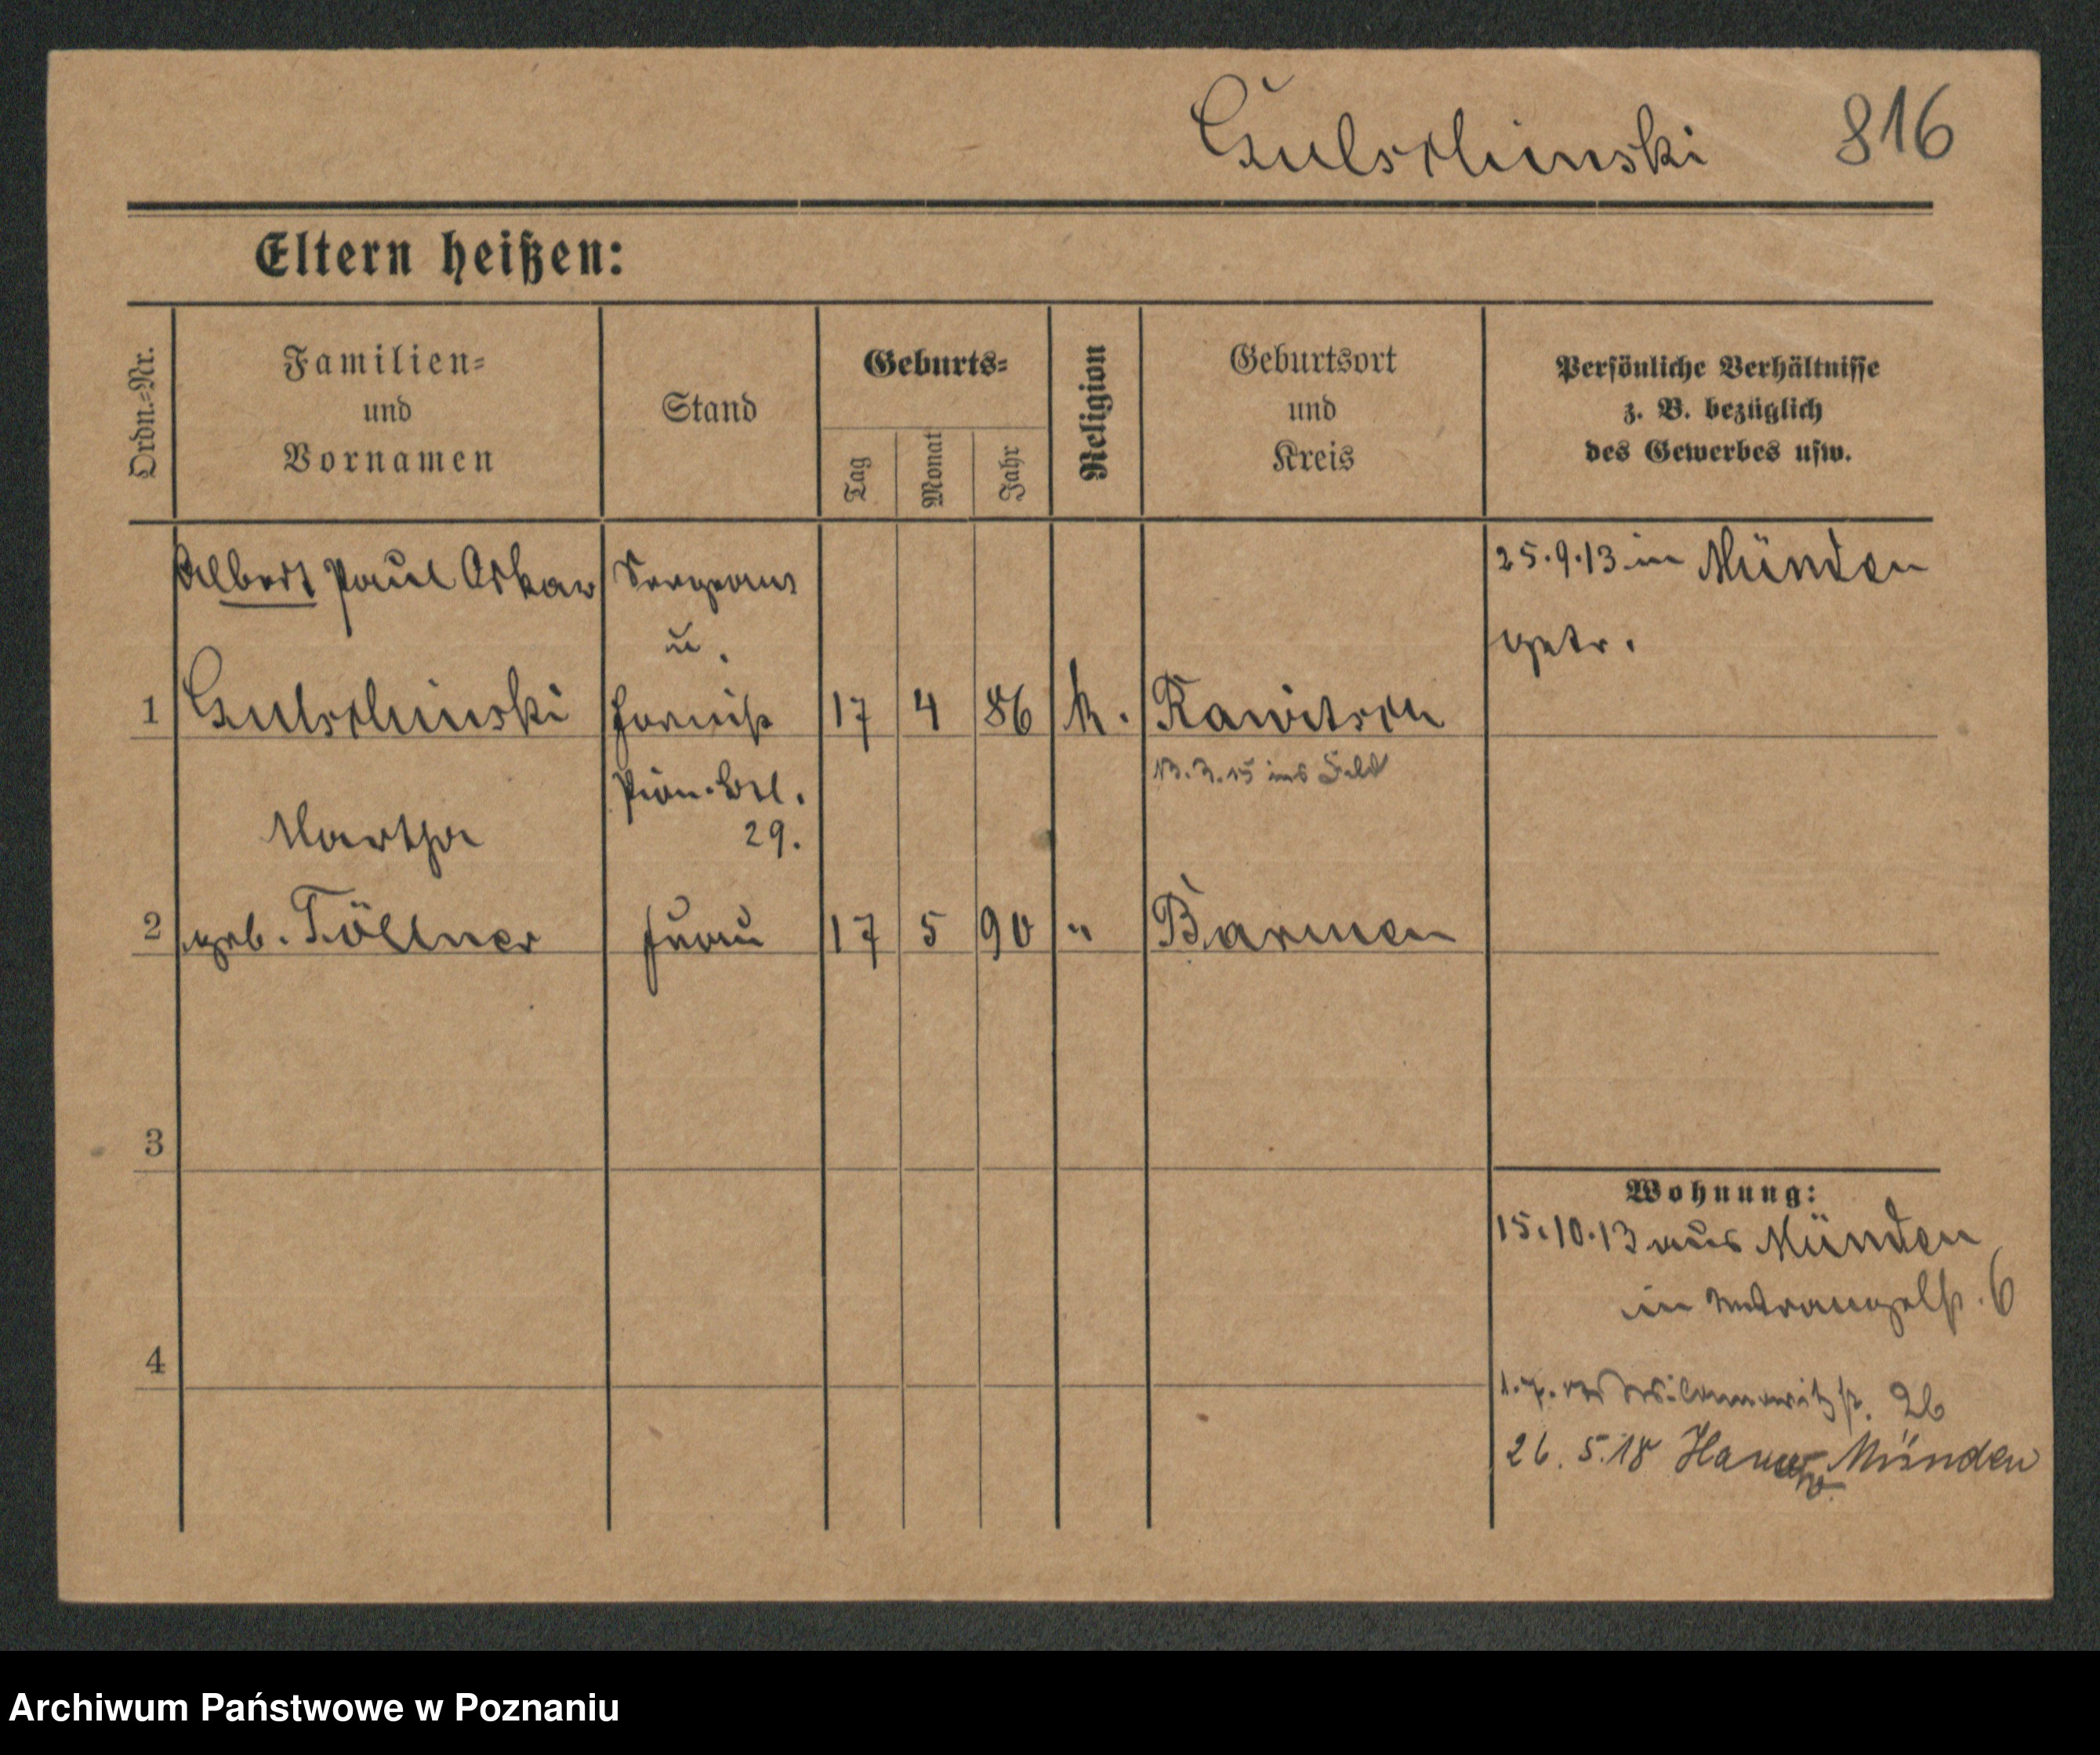 Gulschinski 816
Eltern heißen:
Ordn.-Nr.
Familien-
und
Vornamen
Stand
Geburts-
Tag
Monat
Jahr
Religion
Geburtsort
und
Kreis
Persönliche Verhältnisse
z. B. bezüglich
des Gewerbes usw.
Albert Paul Oskar Sergeant 25.9.13 in Münden
u. getr.
1 Gulschinski 17 4 86 k. Rawitsch
Pion. Btl. 13.3.15 ins Feld
Martha 29.
2 geb. Töllner Frau 17 5 90 " Barmen
3
Wohnung:
15.10.13 aus Münden
in Wrangelst. 6
4
26
26.5.18 Hann Münden
Archiwum Państwowe w Poznaniu